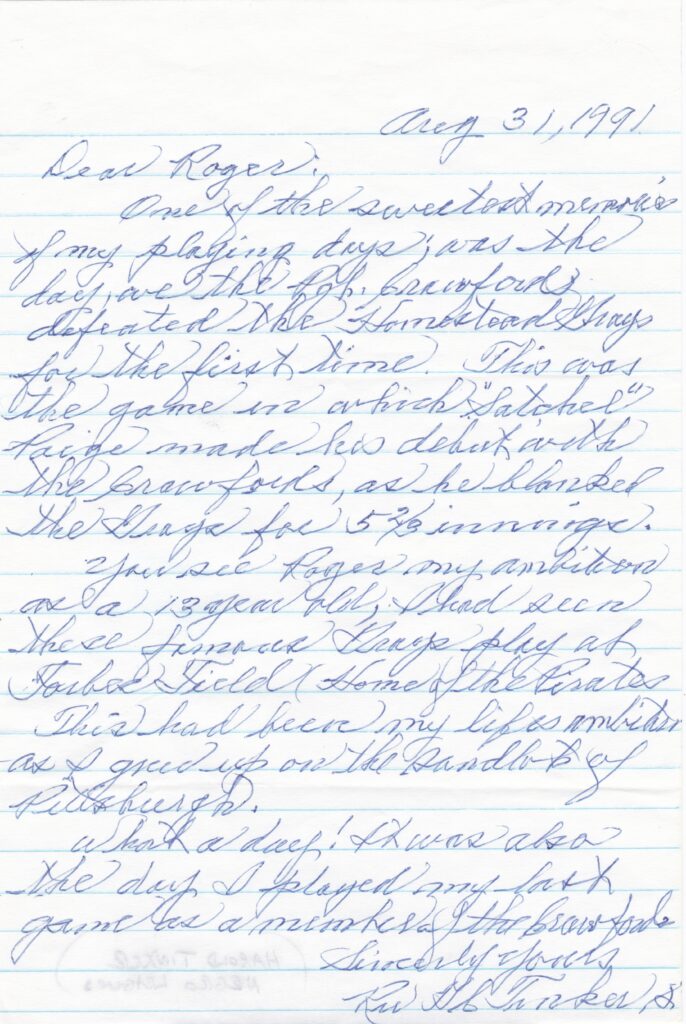 Aug 31, 1991
Dear Roger:
One of the sweetest memories
of my playing days; was the
day, we the Pgh. Crawfords
defeated the Homestead Grays
for the first time. This was
the game in which "Satchel"
Paige made his debut with
the Crawfords, as he blanked
the Grays for 5 2/3 innings.
You see Roger my ambition
as a 13 year old, I had seen
these famous Grays play at
Forbes Field (Home of the Pirates
This had been my lifes ambition
as I grew up on the sandlots of
Pittsburgh.
What a day! It was also
the day I played my last
game as a member of the Crawfords
Sincerely Yours
Rev H C Tinker, Sr.
(HAROLD TINKER
NEGRO LEAGUES)